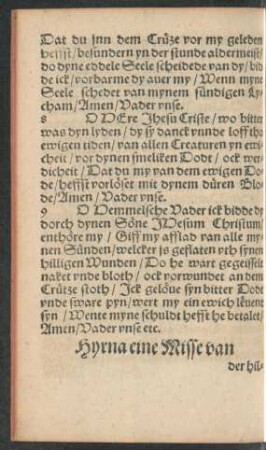 Dat du jnn dem Crütze vor my geleden
hefft / besündern yn der stunde aldermeist /
do dyne eddele Seele scheidede van dy / bid
de ick / vorbarme dy auer my / Wenn myne
Seele schedet van mynem sündigen Ly
cham / Amen / Vader vnse.
8 O HEre Jhesu Criste / wo bitter
was dyn lyden / dy sy danck vnnde loff tho
ewigen tiden / van allen Creaturen yn ewi
cheit / vor dynen smeliken Dodt / ock wer
dicheit / Dat du my van dem ewigen Do
de / heffst vorlöset mit dynem düren Blo
de / Amen / Vader vnse.
9 O Hemmelsche Vader ick bidde dy
dorch dynen Söne JHesum Christum /
enthöre my / Giff my afflad van alle my
nen Sünden / welcker js geflaten vth synen
hilligen Wunden / Do he wart gegeisselt
naket vnde bloth / ock vorwundet an dem
Crütze stoth / Jck gelöue syn bitter Dodt
vnde sware pyn / wert my ein ewich leuent
syn / Wente myne schuldt hefft he betalet /
Amen / Vader vnse etc.
Hyrna eine Misse van
der hil-